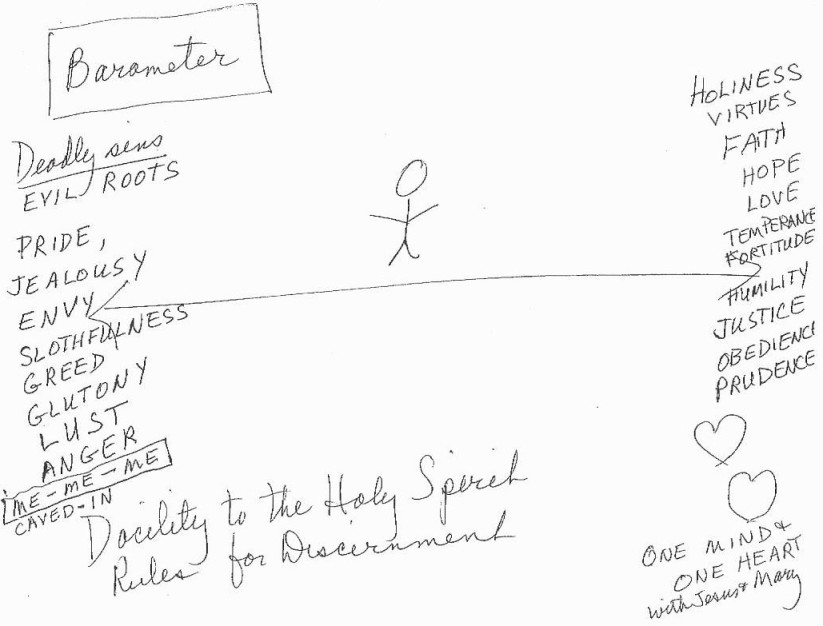 Barometer
Deadly sins
EVIL ROOTS
PRIDE,
JEALOUSY
ENVY
SLOTHFULNESS
GREED
GLUTONY
LUST
ANGER
ME-ME-ME
CAVED-IN
Docility to the Holy Spirit
Rules for Discernment
HOLINESS
VIRTUES
FAITH
HOPE
LOVE
TEMPERANCE
FORTITUDE
HUMILITY
JUSTICE
OBEDIENC
PRUDENCE
ONE MIND &
ONE HEART
with Jesus & Mary